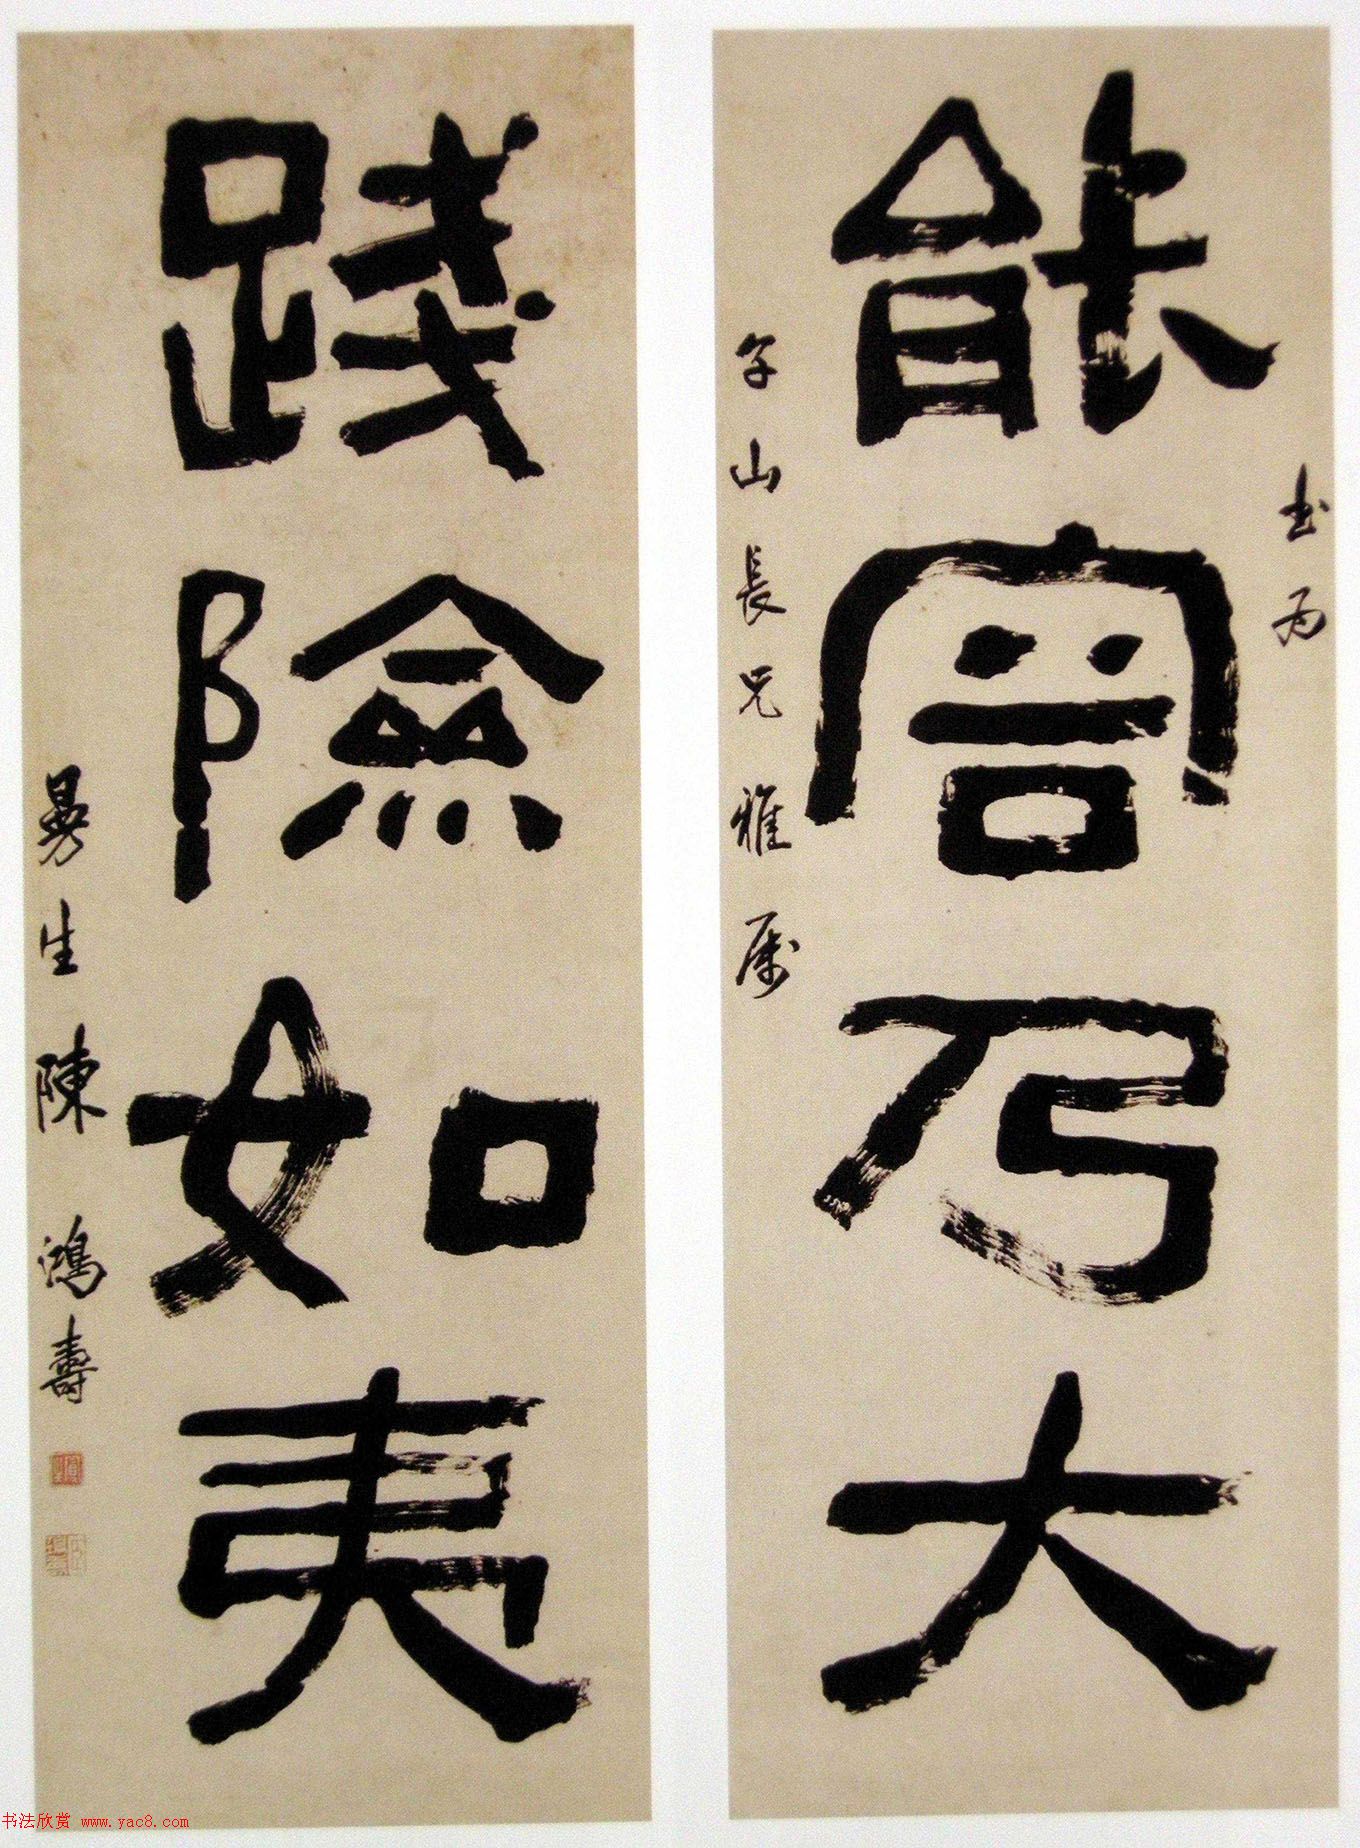 書為
能容乃大
山長兄雅屬
踐險如夷
曼生陳鴻壽
书法欣赏 www.yac8.com